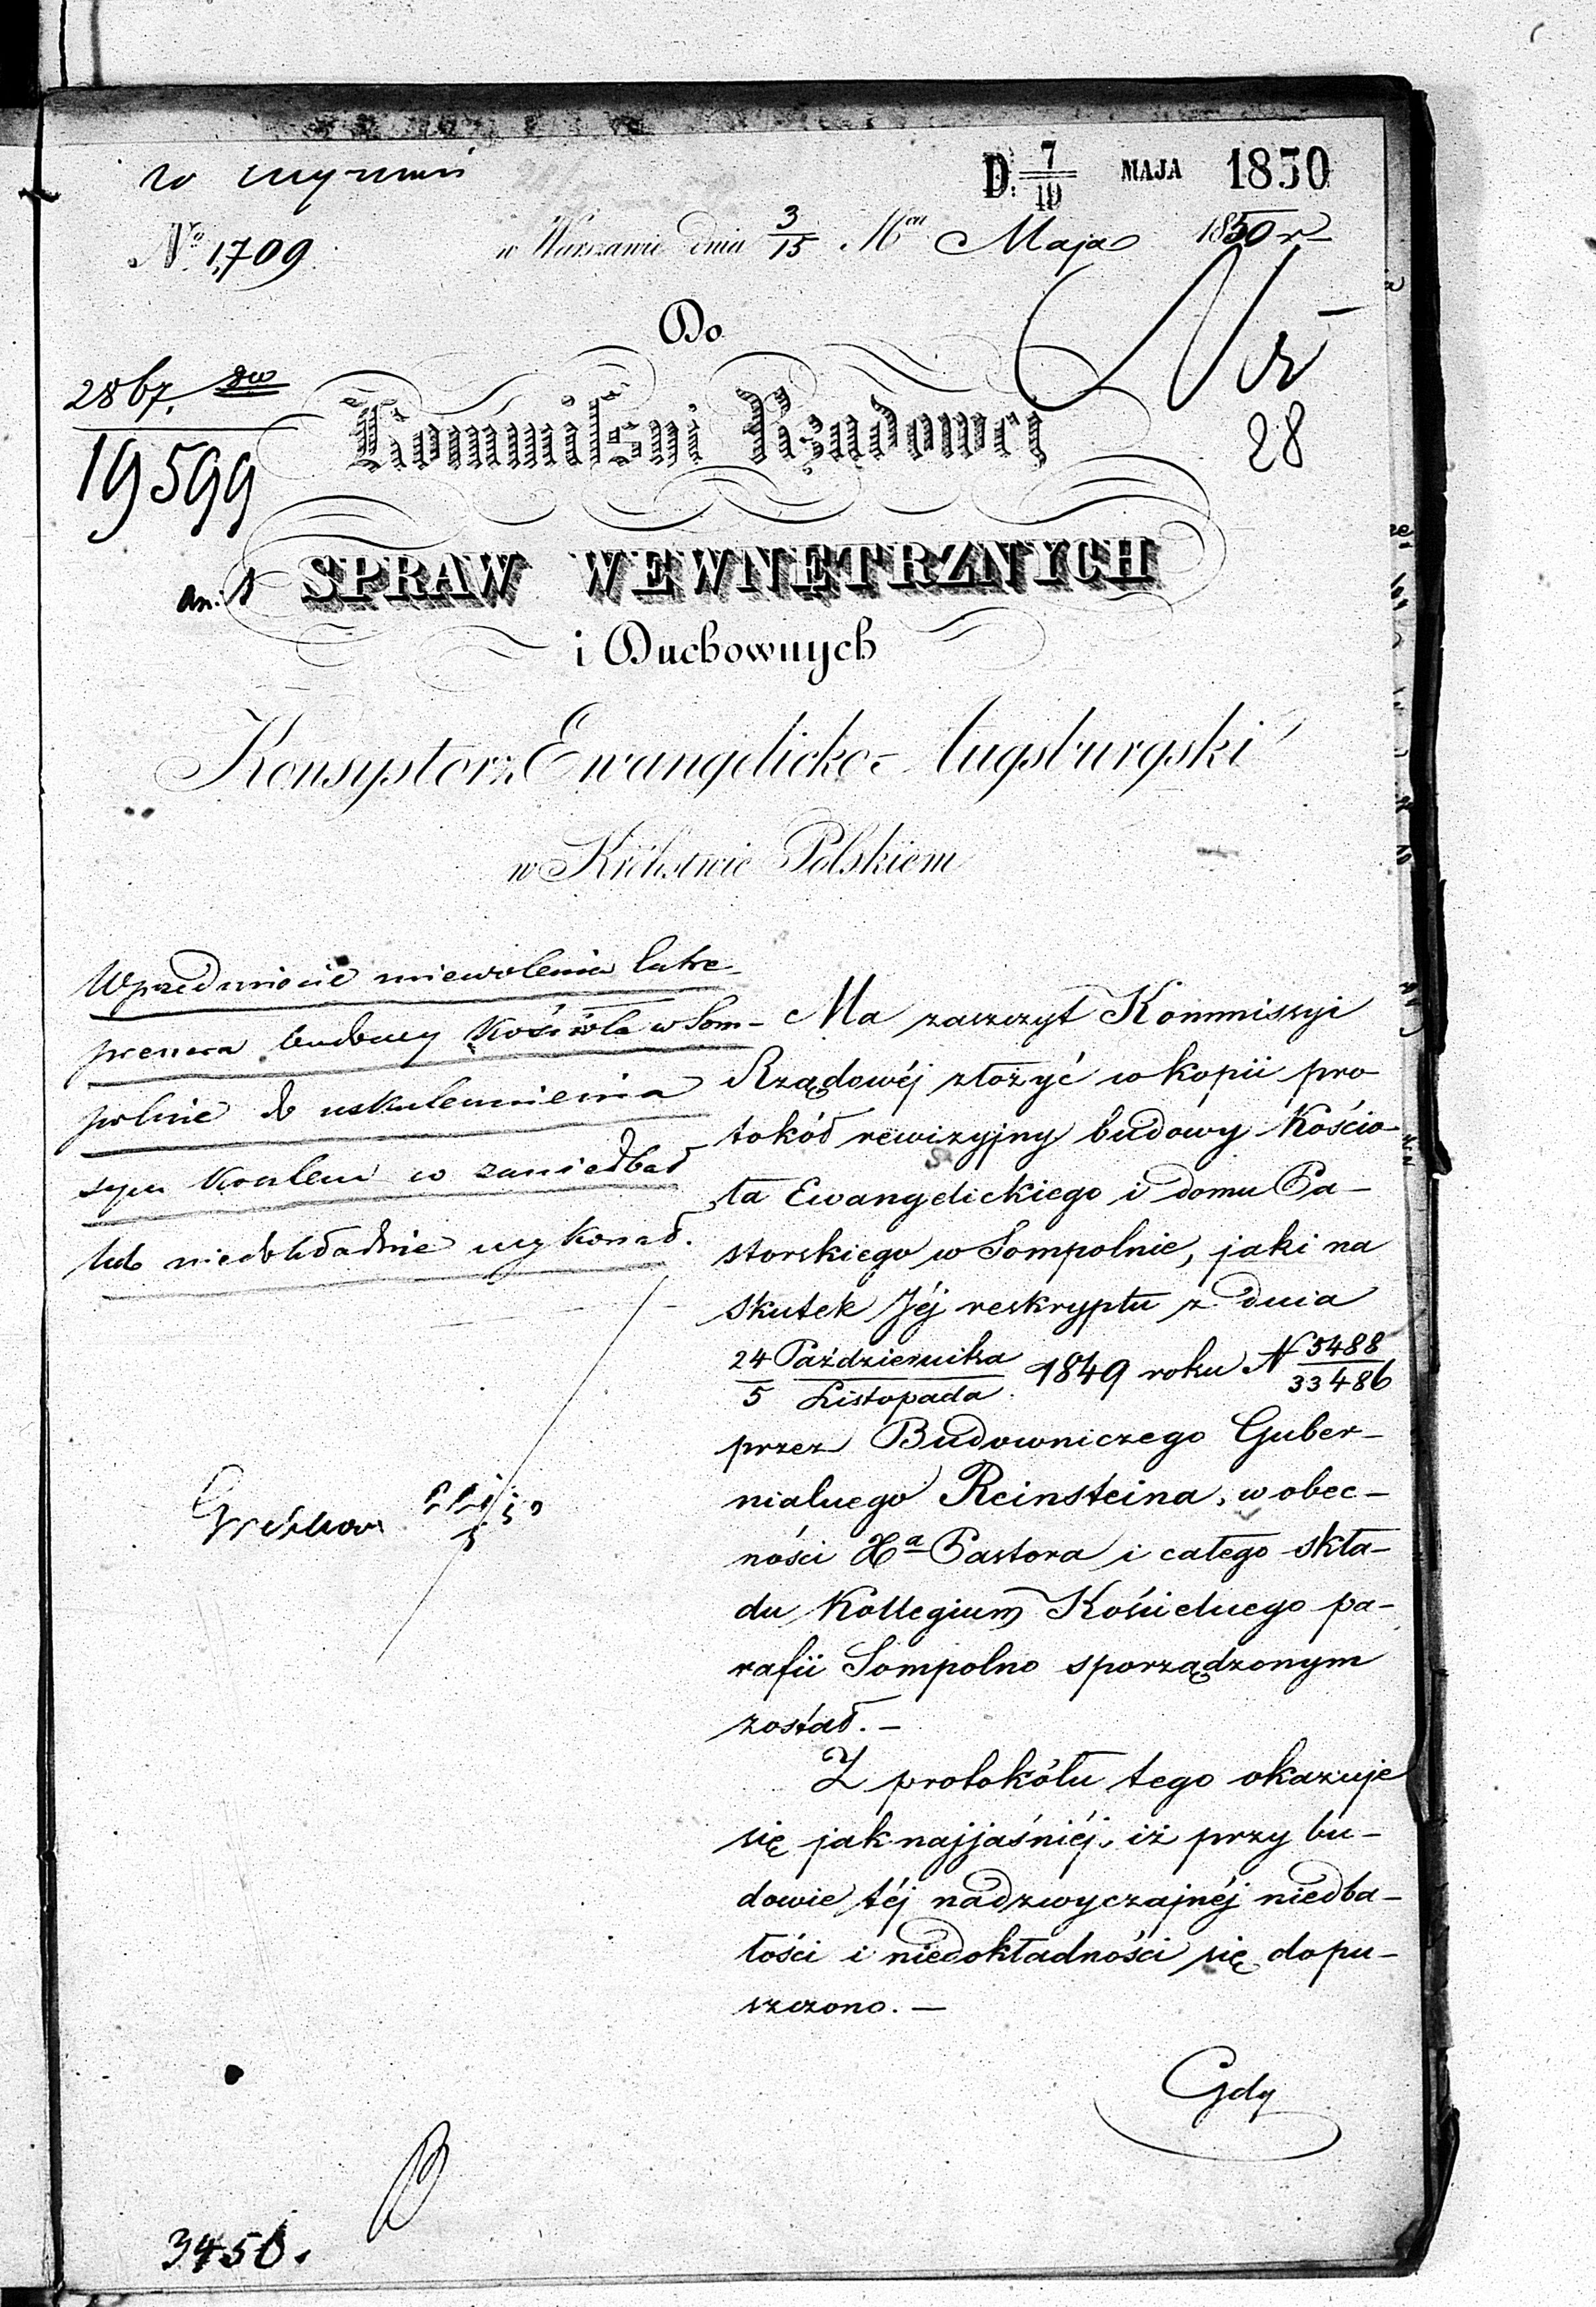 D. 7/19 MAJA 1850
No 1709
w Warszawie dnia 3/15 Mca Maja 1850 r
Do
28
2867.
19599
Kommissyi Rządowej
an. 1
SPRAW WEWNĘTRZNYCH
i Duchownych
Konsystorz Ewangelicko-Augsburgski
w Królestwie Polskiem
W przedmiocie zniewolenia Entre-
prenera budowy Kościoła w Som-
polnie do uskutecznienia
tego co zaniedbał
lub niedokładnie wykonał.
Ma zaszczyt Kommissyi
Rządowéj złożyć w kopii pro
tokół rewizyjny budowy Kościo-
ła Ewangelickiego i domu Pa-
storskiego w Sompolnie, jaki na
skutek Jéj reskryptu z dnia
24 Października/5 Listopada 1849 roku N 5488/33486
przez Budowniczego Guber-
nialnego Reinsteina, w obec-
ności Xa Pastora i całego skła-
du Kollegium Kościelnego pa-
rafii Sompolno sporządzonym
został. –
Z protokółu tego okazuje
się jak najjaśniéj, iż przy bu-
dowie téj nadzwyczajnéj niedba-
łości i niedokładności się dopu-
szczono. –
Gdy
3450.